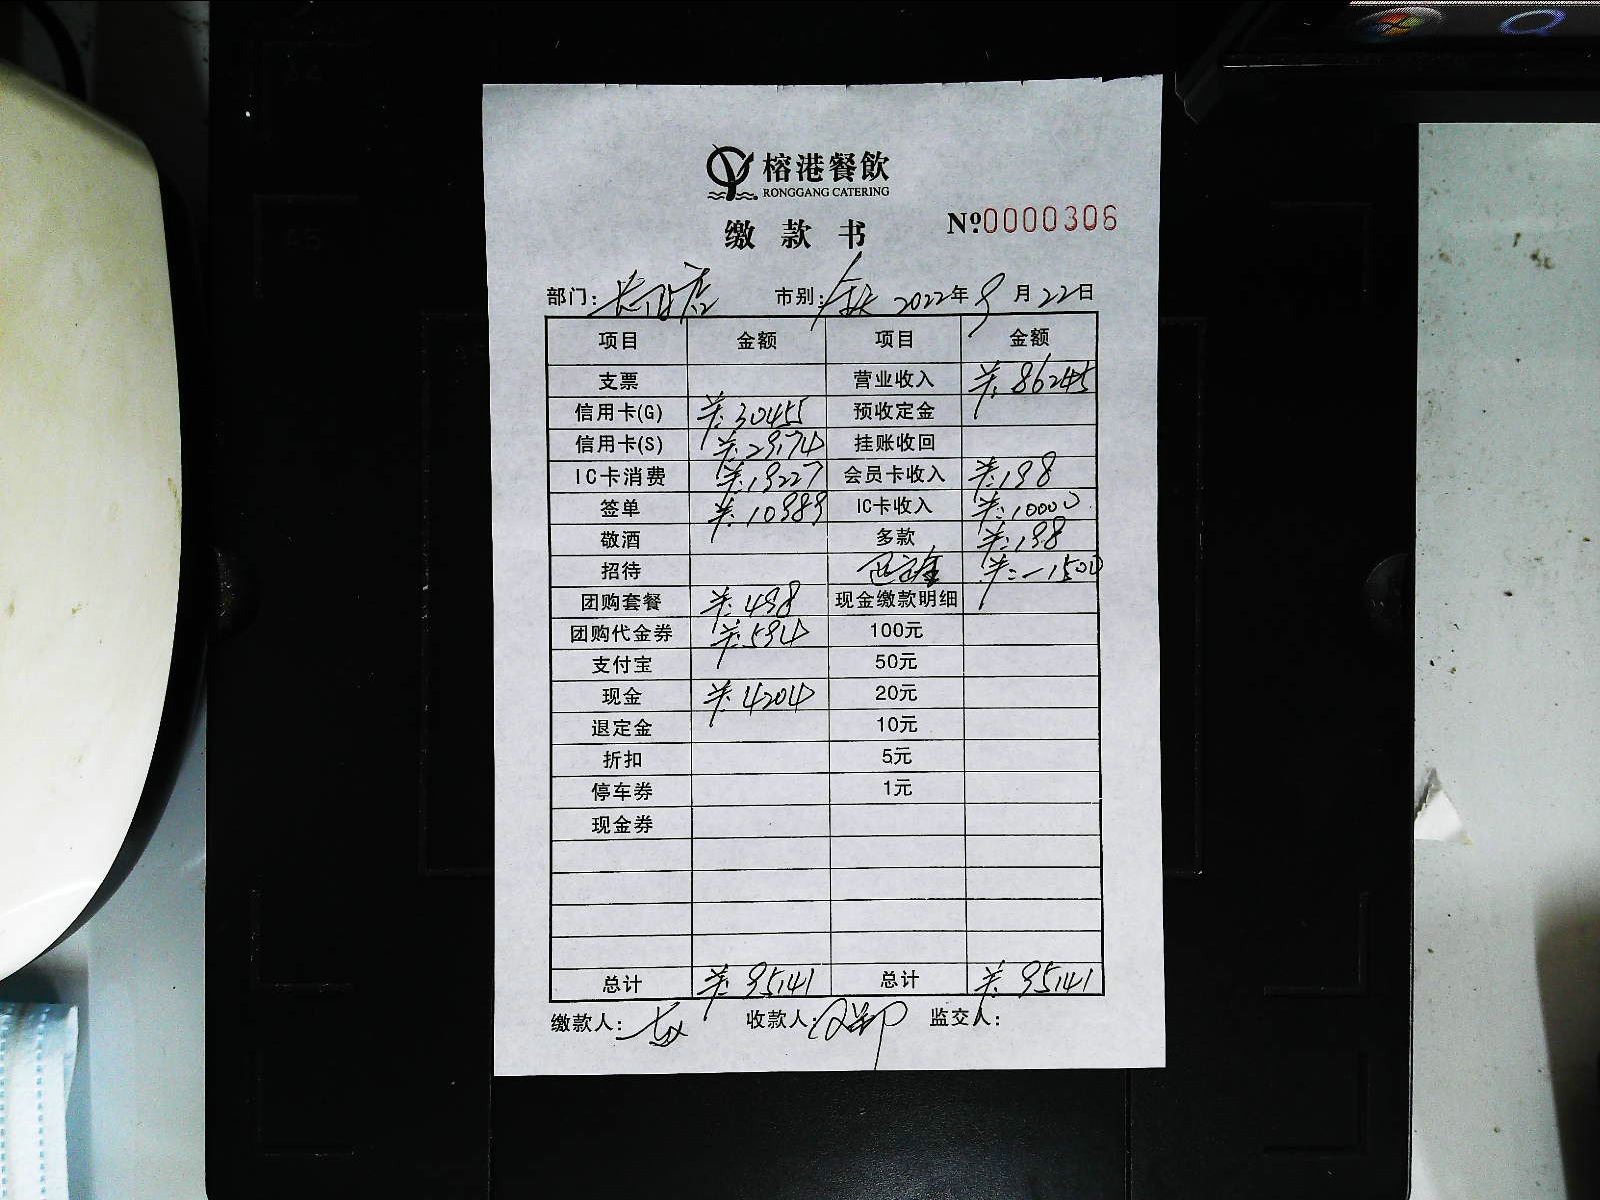 榕港餐飲
RONGGANG CATERING
缴款书 №0000306
部门: 市别:全天 2022年9月22日
项目 金额 项目 金额
支票 营业收入 ¥:86245
信用卡(G) ¥:30455 预收定金
信用卡(S) ¥:29174 挂账收回
IC卡消费 ¥:19227 会员卡收入 ¥:198
签单 ¥:10989 IC卡收入 ¥:10000
敬酒 多款 ¥:198
招待 退定金 ¥:-1500
团购套餐 ¥:498 现金缴款明细
团购代金券 ¥:594 100元
支付宝 50元
现金 ¥:4204 20元
退定金 10元
折扣 5元
停车券 1元
现金券
总计 ¥:95141 总计 ¥:95141
缴款人: 收款人: 监交人: